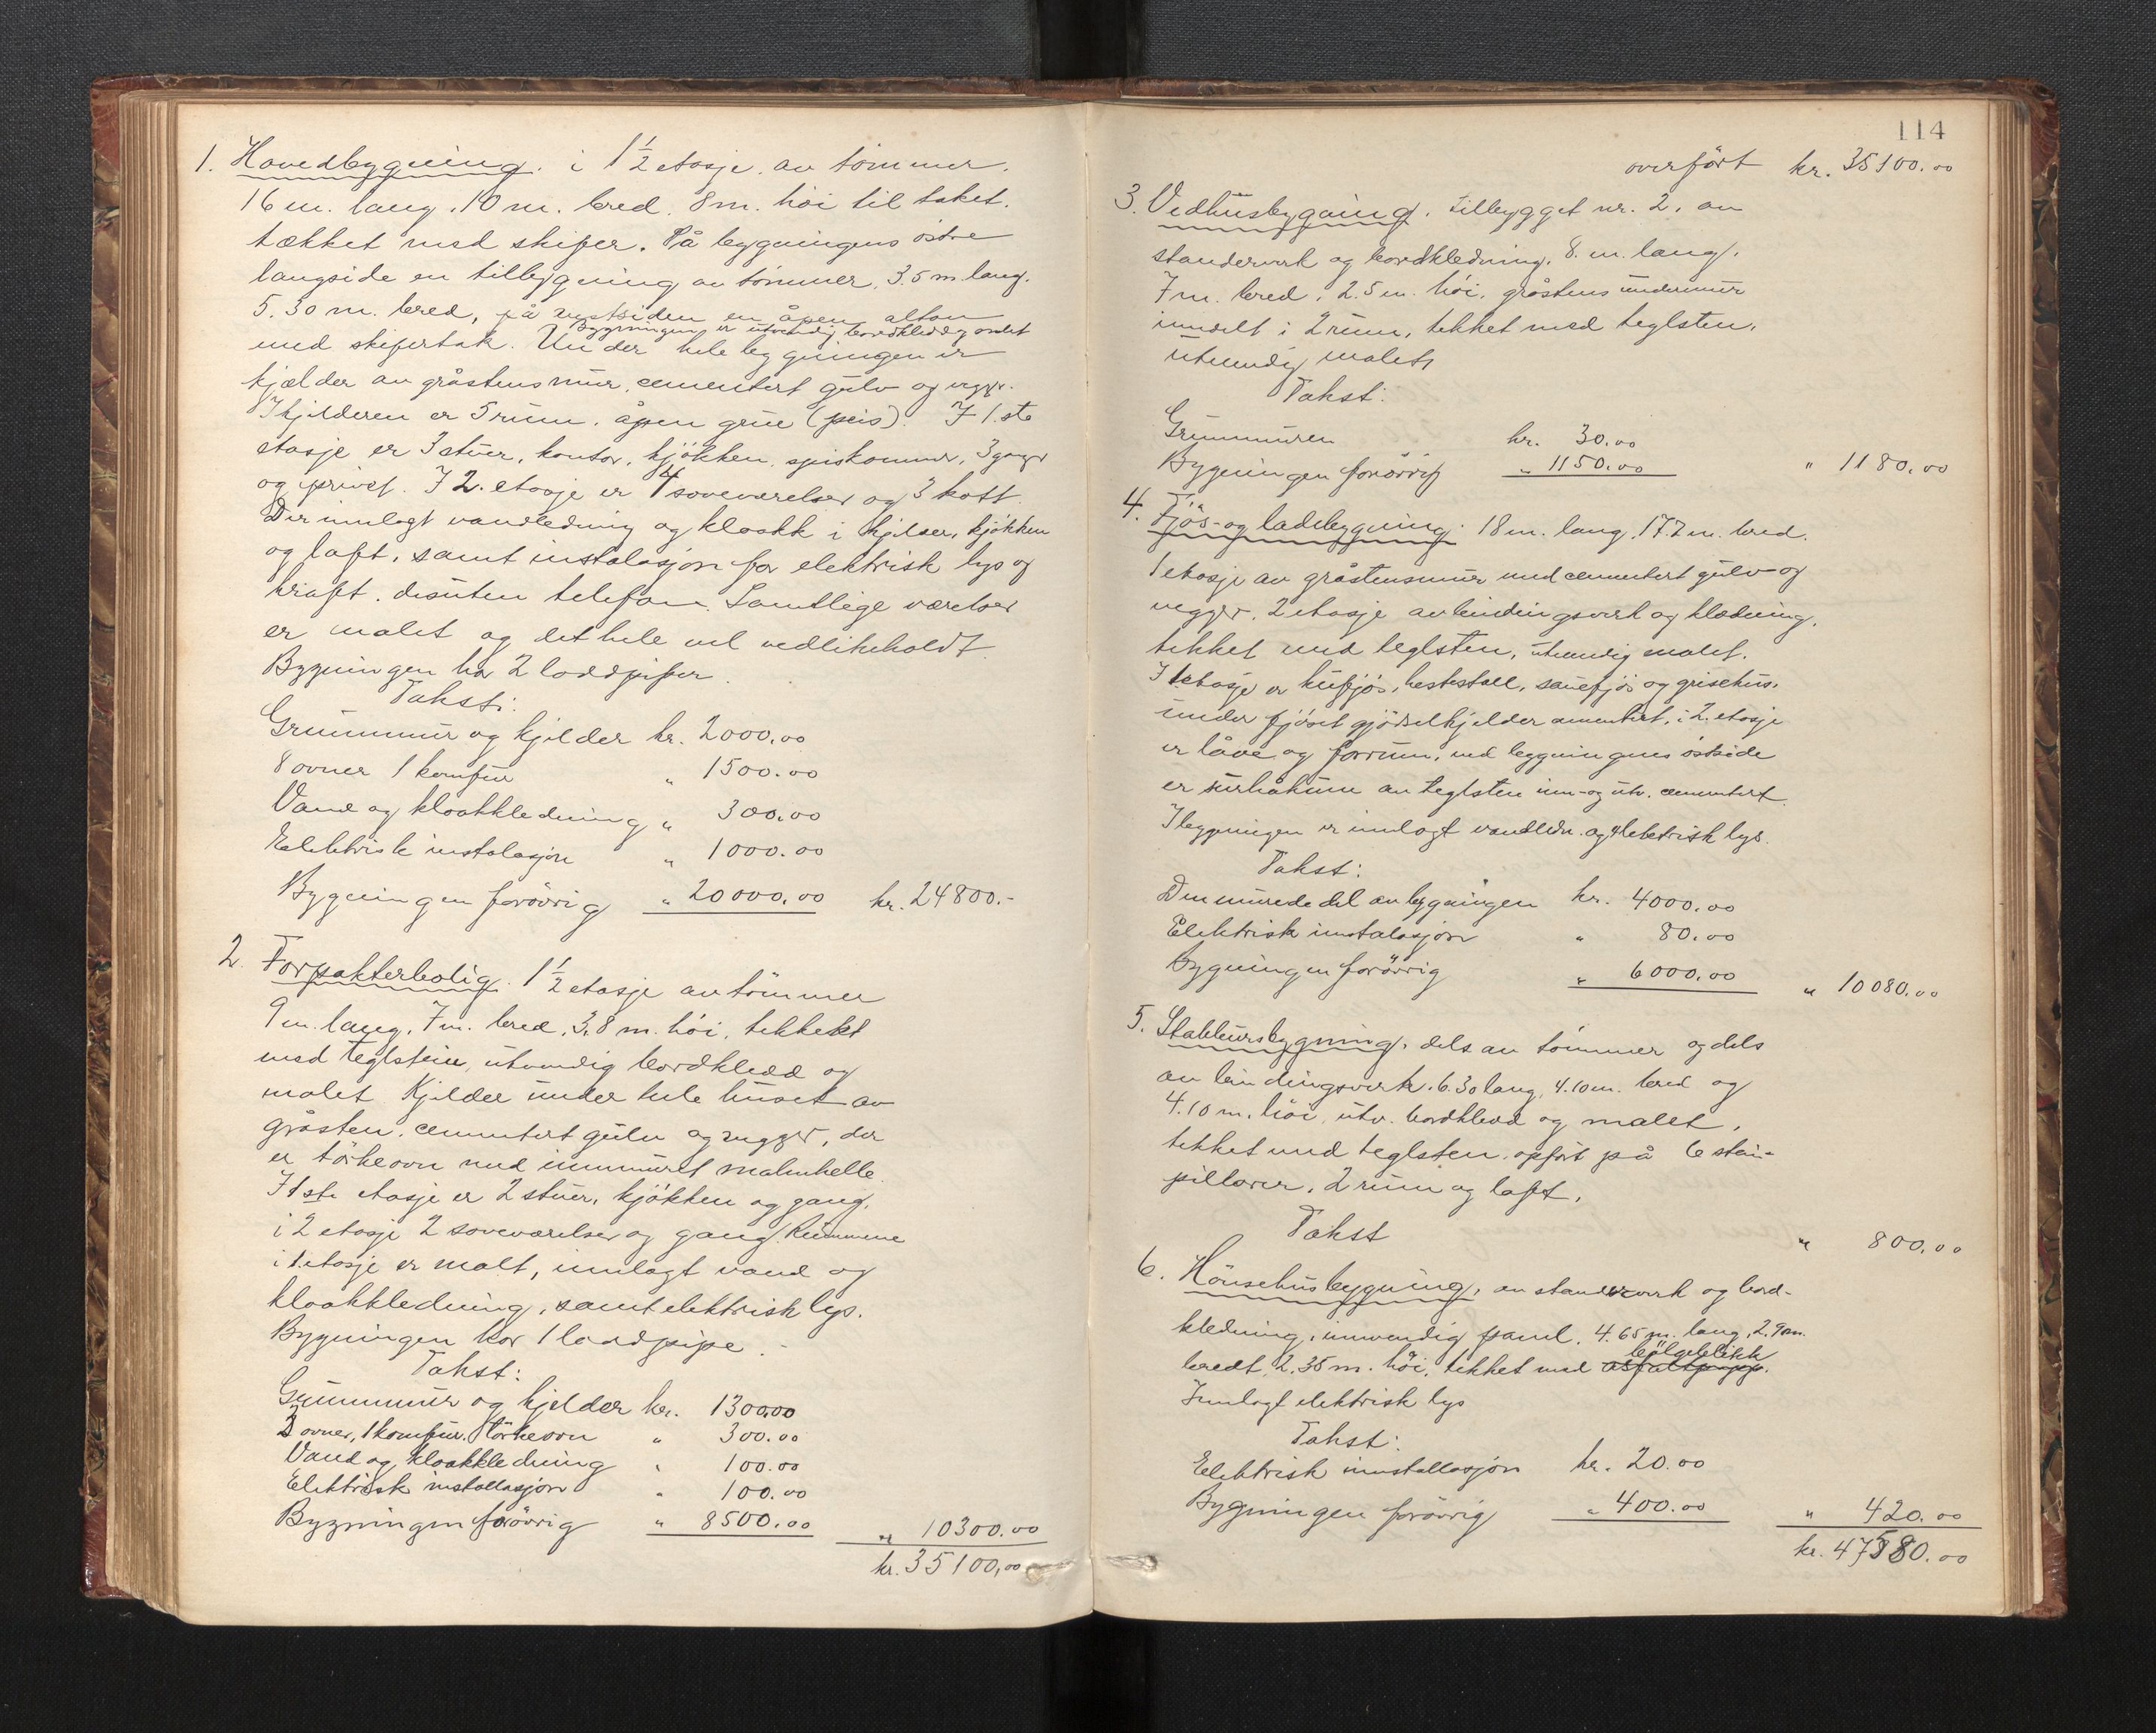 1. Hovedbygning. i 1½ etasje. av tömmer.
16 m. lang. 10 m. bred. 8 m. höi til taket.
tækket med skifer. På bygningens östre
langside en tilbygning av tömmer, 3.5 m. lang.
5.30 m. bred, på vestsiden en åpen altan
med skifertak. Bygningen er utvendig bordkledd og malt Under hele bygningen er
kjælder av gråstensmur, cementert gulv og vegger.
I kjelderen er 5 rum, åpen grue (peis). I 1.ste
etasje er 3 stuer, kontor, kjökken, spiskammer, 3 ganger
og privet. I 2. etasje er 4 soveværelser og 3 kott.
Der innlagt vandledning og kloakk i kjelder, kjökken
og loft, samt instalasjon for elektrisk lys og
kraft. desuten telefon. Samtlige værelser
er malet og det hele vel vedlikeholdt
Bygningen har 2 loddpiper.
Takst:
Grunnmur og kjelder kr. 2000.00
8 ovner 1 komfur " 1500.00
Vand og kloakkledning " 300.00
Elektrisk instalasjon " 1000.00
Bygningen forövrig " 20000.00 kr. 24800.-
2. Forpakterbolig. 1½ etasje av tömmer
9 m. lang, 7 m. bred, 3.8 m. höi, tekkekt
med teglstein, utvendig bordkledd og
malet Kjelder under hele huset av
gråsten, cementert gulv og vegger, der
er törkeovn med innmuret malmhelle.
I 1ste etasje er 2 stuer, kjökken og gang,
i 2 etasje 2 soveværelser og gang. Rummene
i 1. etasje er malt, innlagt vand og
kloakkledning, samt elektrisk lys.
Bygningen har 1 loddpipe.
Takst:
Grunnmur og kjelder kr. 1300.00
3 ovner, 1 komfur. Törkeovn " 300.00
Vand og kloakkledning " 100.00
Elektrisk installasjon " 100.00
Bygningen forövrig " 8500.00 " 10300.00
kr. 35100,00
114
overfört kr. 35100.00
3. Vedhusbygning. tilbygget nr. 2, av
standerverk og bordkledning. 8. m. lang,
7 m. bred, 2.5 m. höi, gråstens undermur
inndelt i 2 rum, tekket med teglsten,
utvendig malet,
Takst:
Grunnmuren kr. 30.00
Bygningen forövrig " 1150.00 " 1180.00
4. Fjös- og ladebygning. 18 m. lang, 17.7 m. bred.
1 etasje av gråstensmur med cementert gulv og
vegger. 2 etasje av bindingsverk og kledning,
tekket med teglsten, utvendig malet.
I 1 etasje er kufjös, hestestall, sauefjös og grisehus,
under fjöset gjödselkjelder cementert, i 2. etasje
er låve og forrum, ved bygningens östside
er surhåkum av teglsten inn- og utv. cementert.
I bygningen er innlagt vandledn. og elektrisk lys.
Takst:
Den murede del av bygningen kr. 4000.00
Elektrisk instalasjon " 80.00
Bygningen forövrig " 6000.00 " 10080.00
5. Stabbursbygning, dels av tömmer og dels
av bindingsverk. 6.30 lang, 4.10 m. bred og
4.10 m. höi, utv. bordkledd og malet,
tekket med teglsten. opfört på 6 stein-
pillarer, 2 rum og loft,
Takst " 800,00
6. Hönsehusbygning, av standerverk og bord-
kledning, innvendig panel. 4.65 m. lang, 2.90 m.
bredt, 2.35 m. höi, tekket med asfaltpapp. bölgeblikk
Innlagt elektrisk lys
Takst:
Elektrisk innstallasjon kr. 20.00
Bygningen forövrig " 400.00 " 420.00
kr. 47580.00